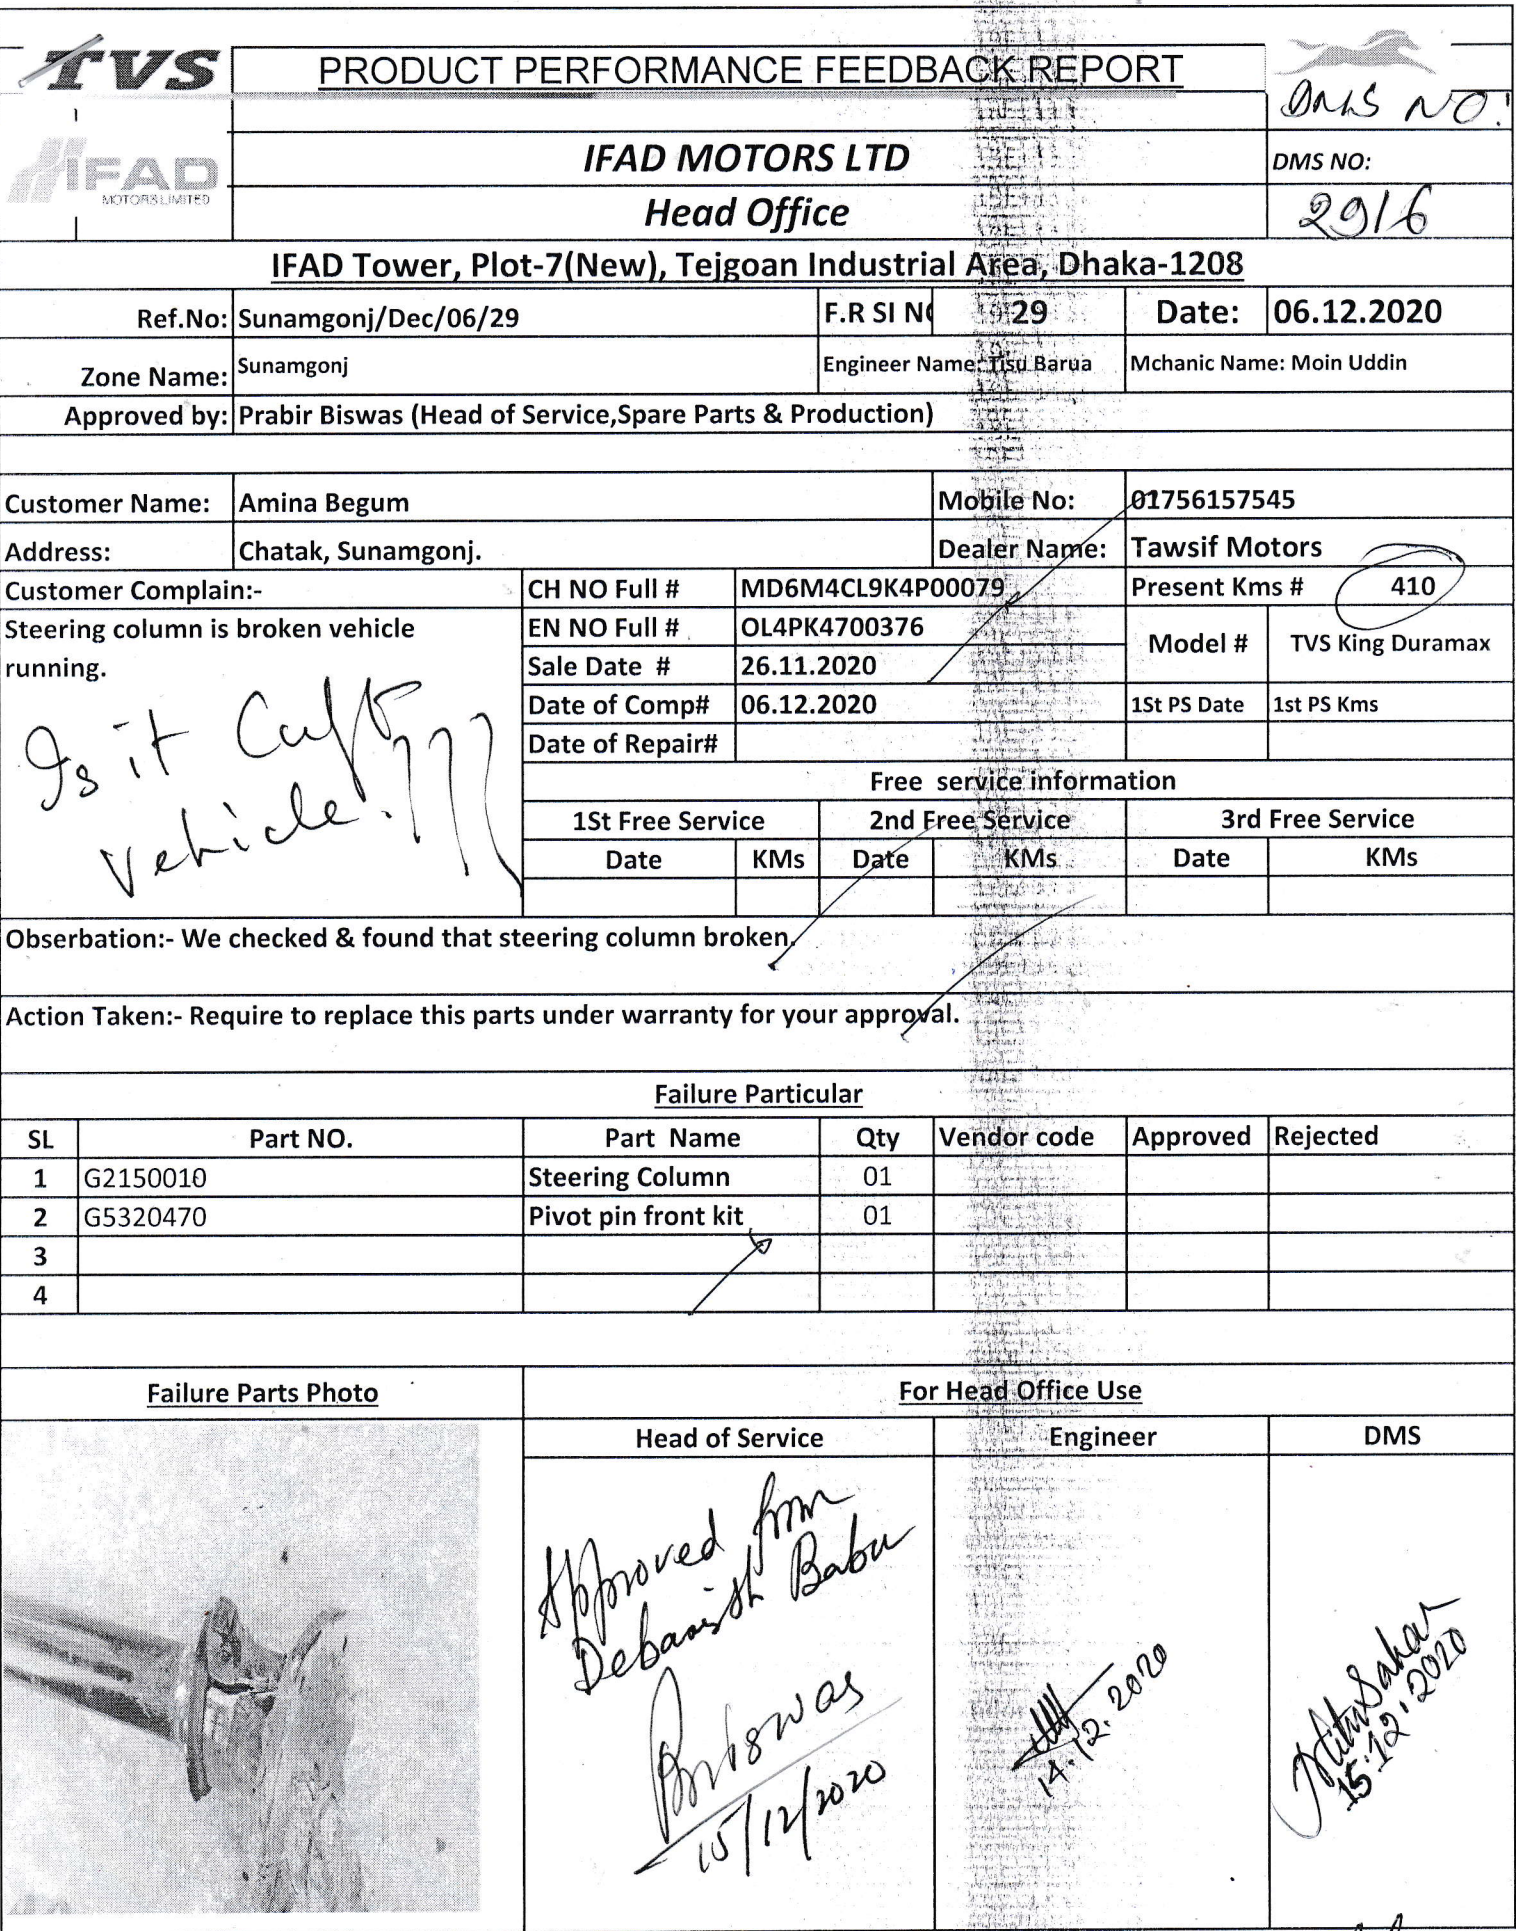 TVS
PRODUCT PERFORMANCE FEEDBACK REPORT
DMS NO!
IFAD
MOTORS LIMITED
IFAD MOTORS LTD
DMS NO:
Head Office
2916
IFAD Tower, Plot-7(New), Tejgoan Industrial Area, Dhaka-1208
Ref.No: Sunamgonj/Dec/06/29 F.R SI NO 29 Date: 06.12.2020
Zone Name: Sunamgonj Engineer Name: Tisu Barua Mchanic Name: Moin Uddin
Approved by: Prabir Biswas (Head of Service,Spare Parts & Production)
Customer Name: Amina Begum Mobile No: 01756157545
Address: Chatak, Sunamgonj. Dealer Name: Tawsif Motors
Customer Complain:- CH NO Full # MD6M4CL9K4P00079 Present Kms # 410
Steering column is broken vehicle EN NO Full # OL4PK4700376 Model # TVS King Duramax
running. Sale Date # 26.11.2020
Date of Comp# 06.12.2020 1St PS Date 1st PS Kms
Date of Repair#
Is it
vehicle.???
Free service information
1St Free Service 2nd Free Service 3rd Free Service
Date KMs Date KMs Date KMs
Obserbation:- We checked & found that steering column broken.
Action Taken:- Require to replace this parts under warranty for your approval.
Failure Particular
SL Part NO. Part Name Qty Vendor code Approved Rejected
1 G2150010 Steering Column 01
2 G5320470 Pivot pin front kit 01
3
4
Failure Parts Photo For Head Office Use
Head of Service Engineer DMS
Approved from
Debasish Babu
15/12/2020
14.12.2020
15.12.2020